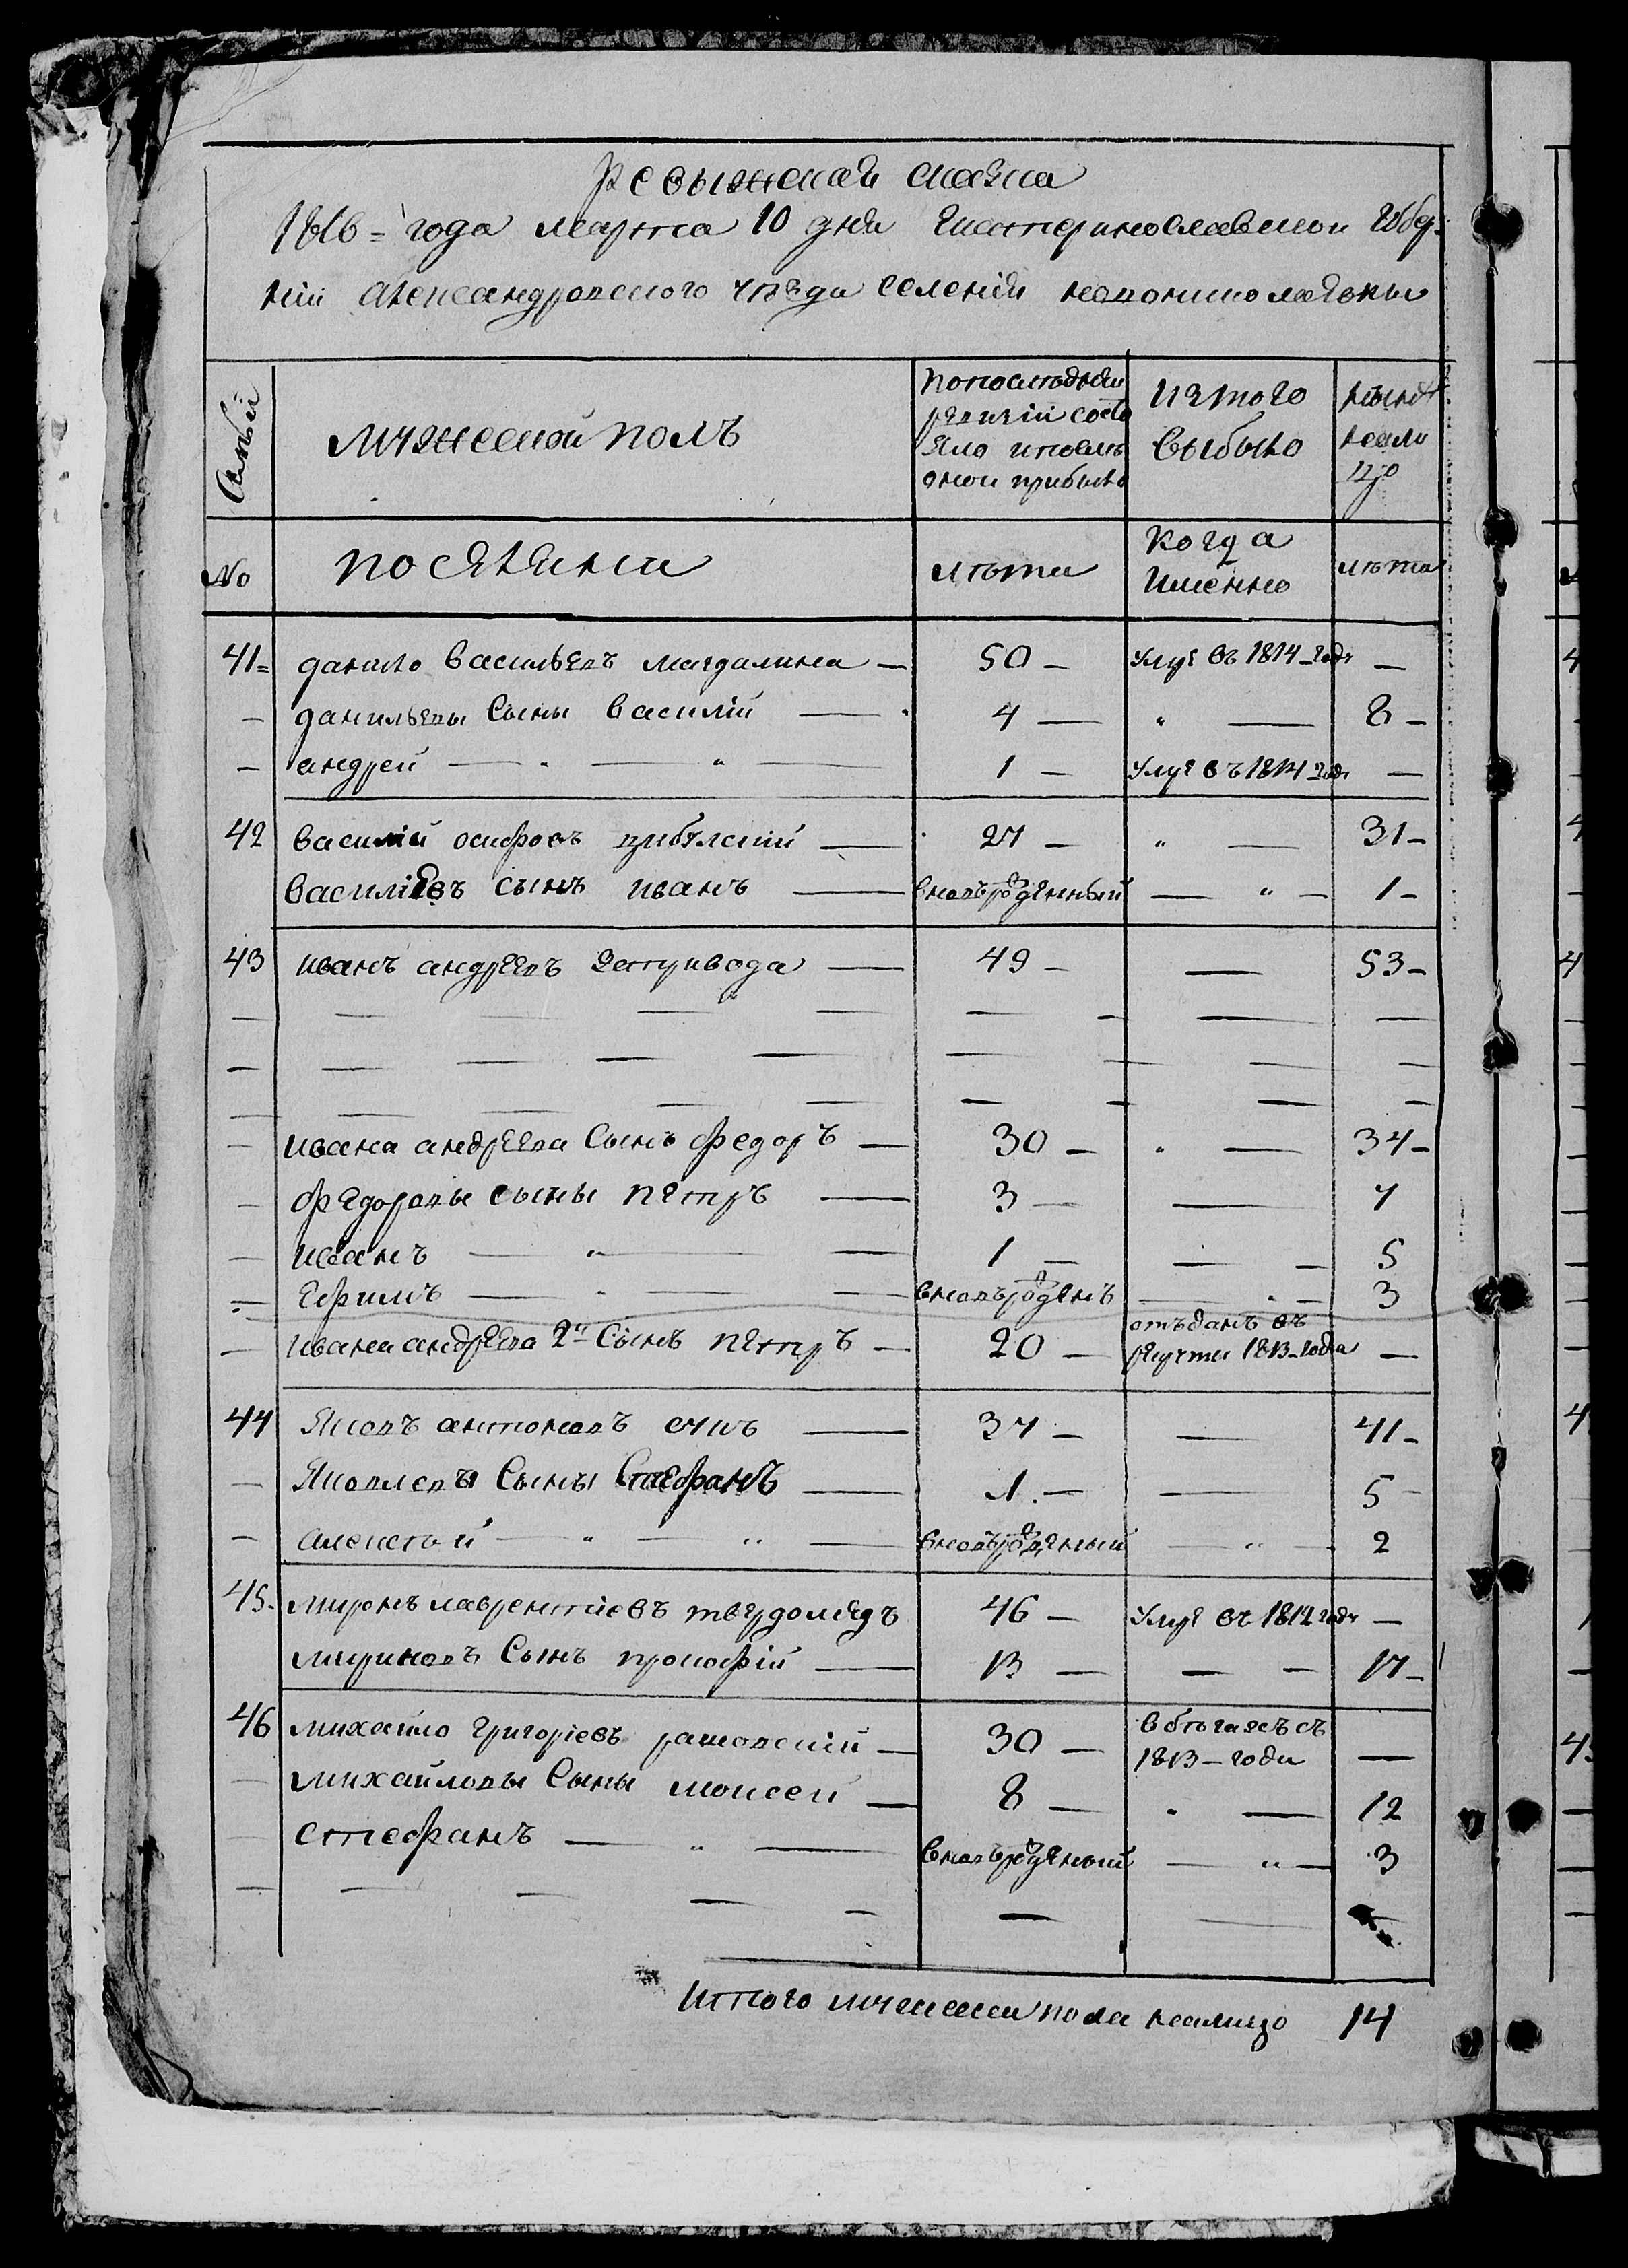 Ревыжская сказка
1816 = года марта 10 дня Екатеринославской Губер
нии Александровского уезда селения Новониколаевки
Семьи
мужеской полъ
по последней
ревизии состо
яло и после
оной прибыло
изтого
выбыло
ныне
нали
цо
No
поселяни
лета
Когда
именно
лета
41= данило Васильевъ магдалина — 50 — умре въ 1814 году —
— данильевы Сыны Василій — 4 — " — 8 —
— андрей — " — " — 1 — умре въ 1814 году —
42 Василій осифовъ — 27 — " — 31 —
Василіевъ сынъ иванъ — вновьрожденный — " — 1 —
43 иванъ андреевъ — 49 — — 53 —
— ивана андреева Сынъ федоръ — 30 — " — 34 —
— федоровы сыны петръ — 3 — — 7
— иванъ — " — 1 — — 5
— Ефимъ — " — вновьрожденъ — " — 3
— ивана андреева 2й Сынъ петръ — 20 — отъданъ въ
рекруты 1813 года —
44 Яковъ антоновъ — 37 — — 41 —
— Яковлевы Сыны Стефанъ — 1. — — 5 —
— алексей — " — " — вновьрожденый — " — 2
45. миронъ лаврентіевъ твердомедъ 46 — умре въ 1812 году —
мироновъ Сынъ прокофій — 13 — — 17 —
46 михайло григоріевъ — 30 — в бегахъ съ
1813 — года —
— михайловы Сыны моисей — 8 — " — 12
— стефанъ — " — вновьрожденый — " — 3
Итого мужеска пола налицо 14